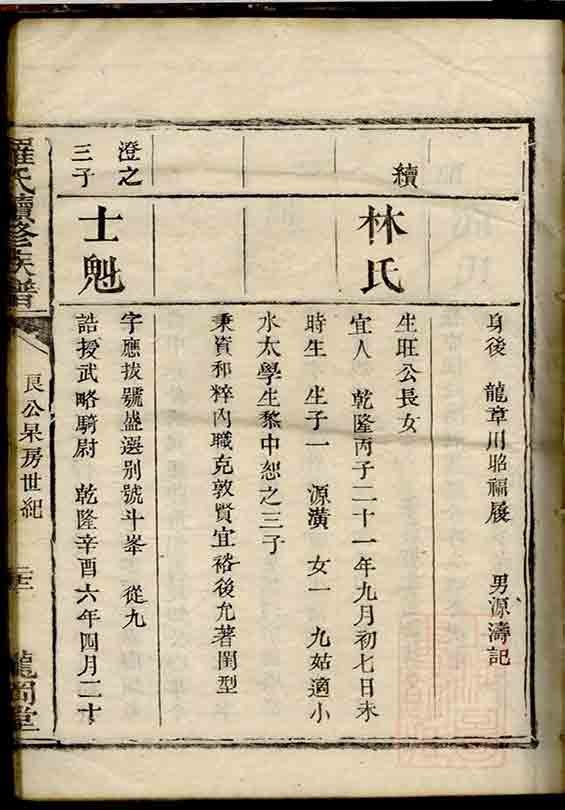 身後 龍章用昭福履 男源濤記
續
林氏
生旺公長女
宜人 乾隆丙子二十一年九月初七日未
時生 生子一 源潢 女一 九姑適小
水太學生黎中恕之三子
秉資和粹內職克敦賢宜裕後允著閨型
澄之
三子
士魁
字應拔號盛選別號斗峯 從九
誥授武略騎尉 乾隆辛酉六年四月二十
羅氏續修族譜
良公杲房世紀